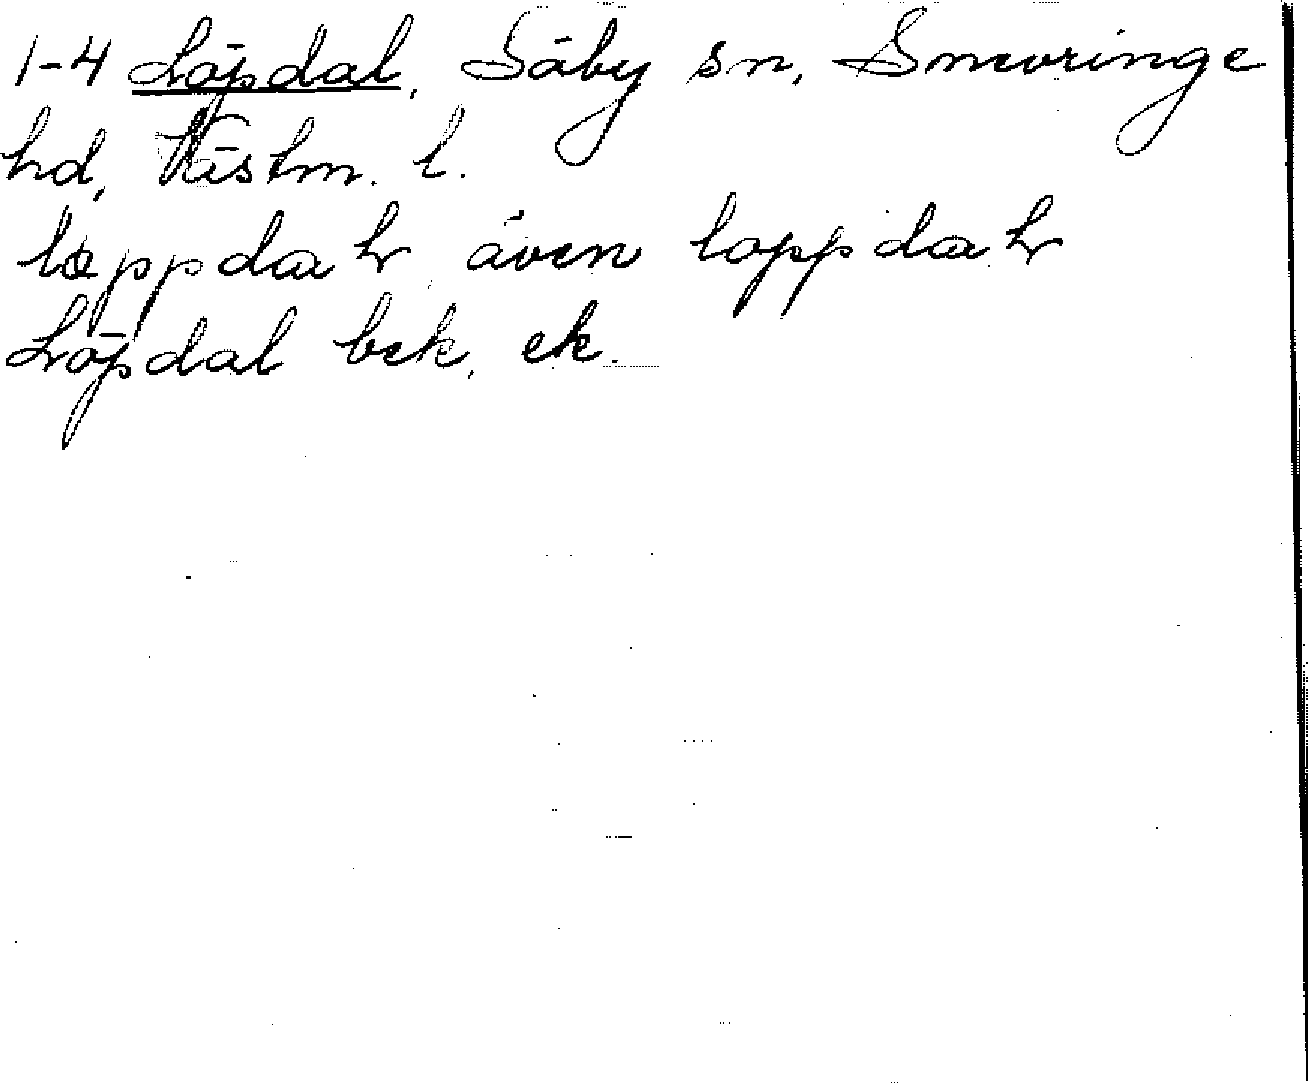 1-4 Löpdal, Säby sn, Snevringe
hd, Västm. l.
löppdaɬ, även loppdaɬ
Löpdal bek. ek.